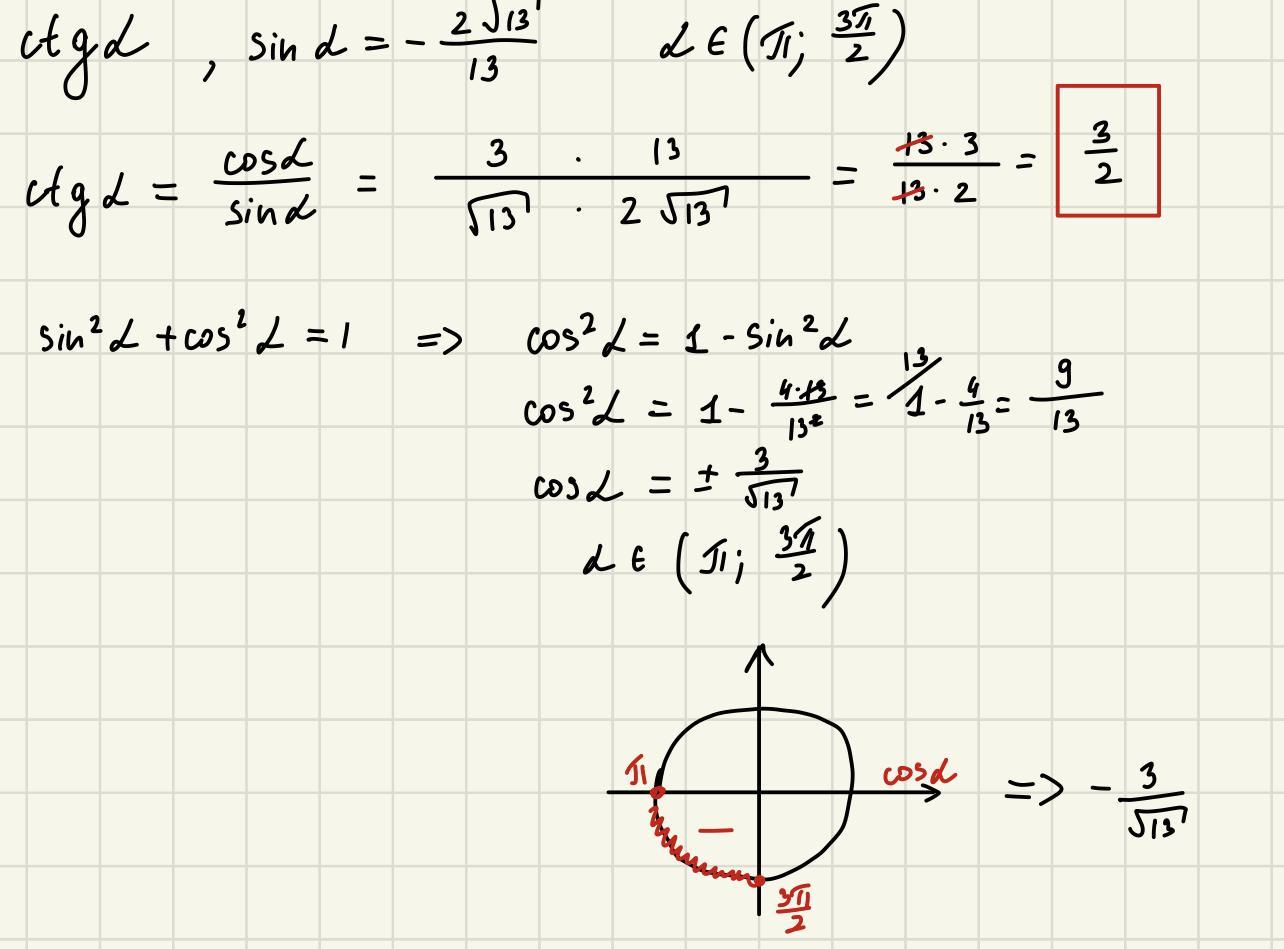 ctg α , sin α = - 2√13/13 α ∈ (π; 3π/2)
ctg α = cosα/sinα = 3 · 13/√13 · 2√13 = 13 · 3/13 · 2 = 3/2
sin²α + cos²α = 1 => cos²α = 1 - sin²α
cos²α = 1 - 4·13/13² = 13/1 - 4/13 = 9/13
cosα = ± 3/√13
α ∈ (π; 3π/2)
π cosα => - 3/√13
−
3π/2